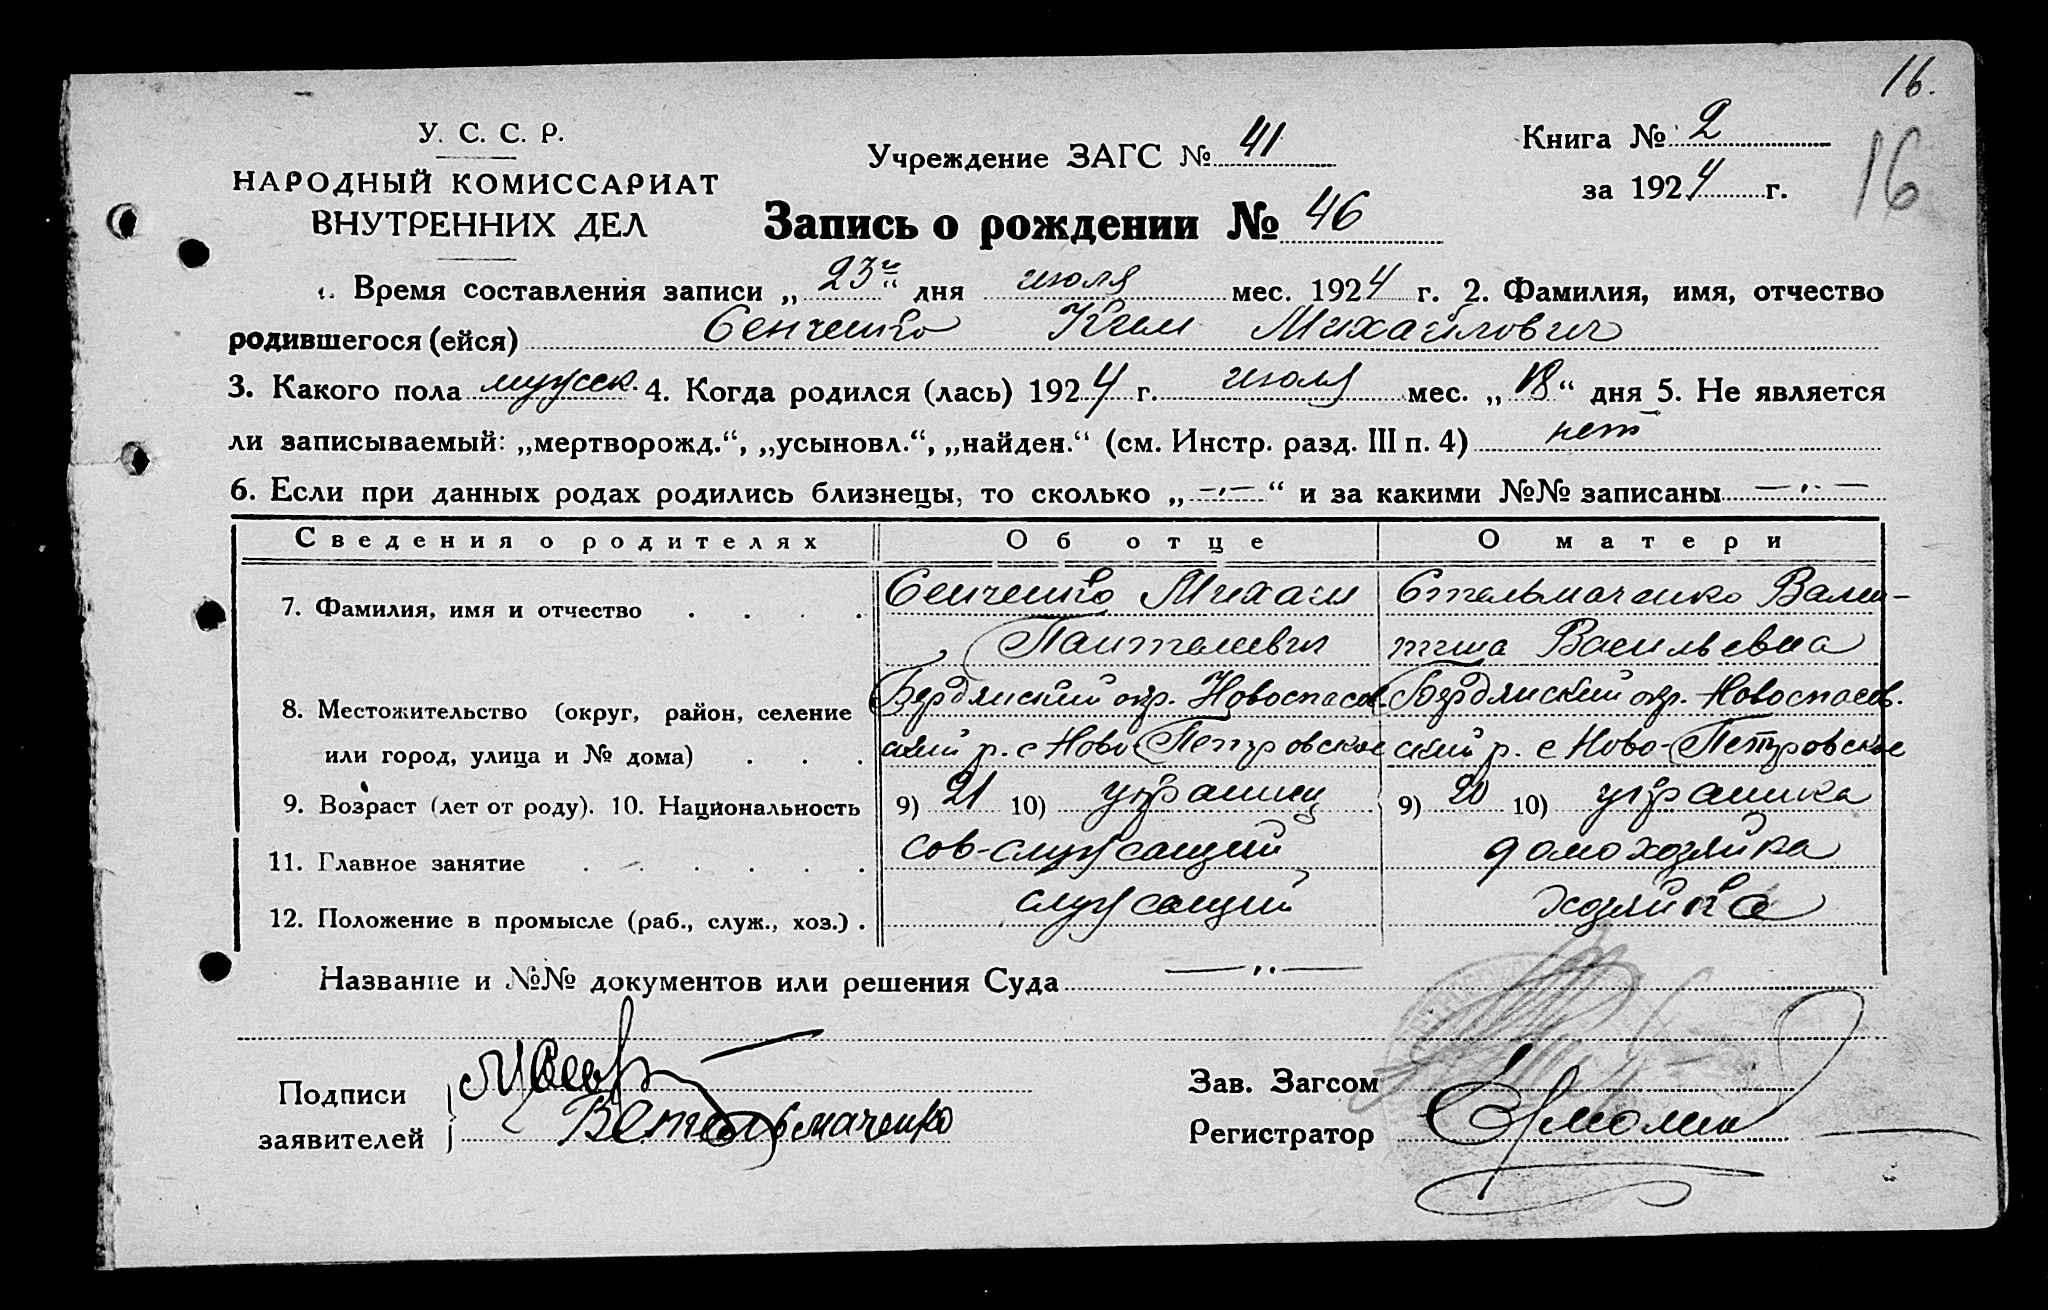 16.
У. С. С. Р.
НАРОДНЫЙ КОМИССАРИАТ
ВНУТРЕННИХ ДЕЛ
Учреждение ЗАГС № 41
Книга № 2
за 1924 г.
16
Запись о рождении № 46
1. Время составления записи „23го“ дня июля мес. 1924 г. 2. Фамилия, имя, отчество
родившегося (ейся) Сенченко Ким Михайлович
3. Какого пола мужск. 4. Когда родился (лась) 1924 г. июля мес. „18“ дня 5. Не является
ли записываемый: „мертворожд.“, „усыновл.“, „найден.“ (см. Инстр. разд. III п. 4) нет
6. Если при данных родах родились близнецы, то сколько „-„-“ и за какими №№ записаны -„-
Сведения о родителях Об отце О матери
7. Фамилия, имя и отчество . . . . Сенченко Михаил Стельмаченко Вален-
Пантелевич тина Васильевна
8. Местожительство (округ, район, селение Бердянский окр. Новоспасов- Бердянский окр. Новоспасов.
или город, улица и № дома) . . . ский р. с Ново-Петровское ский р. с Ново-Петровское
9. Возраст (лет от роду). 10. Национальность 9) 21 10) украинец 9) 20 10) украинка
11. Главное занятие . . . . . . сов-служащий домохозяйка
12. Положение в промысле (раб., служ., хоз.) . служащий хозяйка
Название и №№ документов или решения Суда —„—
Подписи
заявителей
ВСтельмаченко
Зав. Загсом
Регистратор